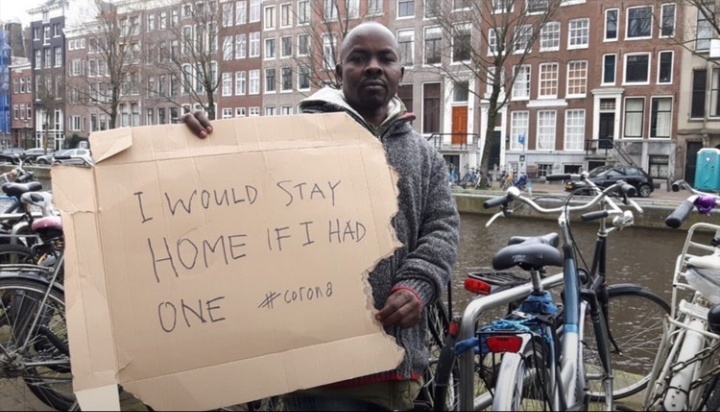 I WOULD STAY
HOME IF I HAD
ONE #corona